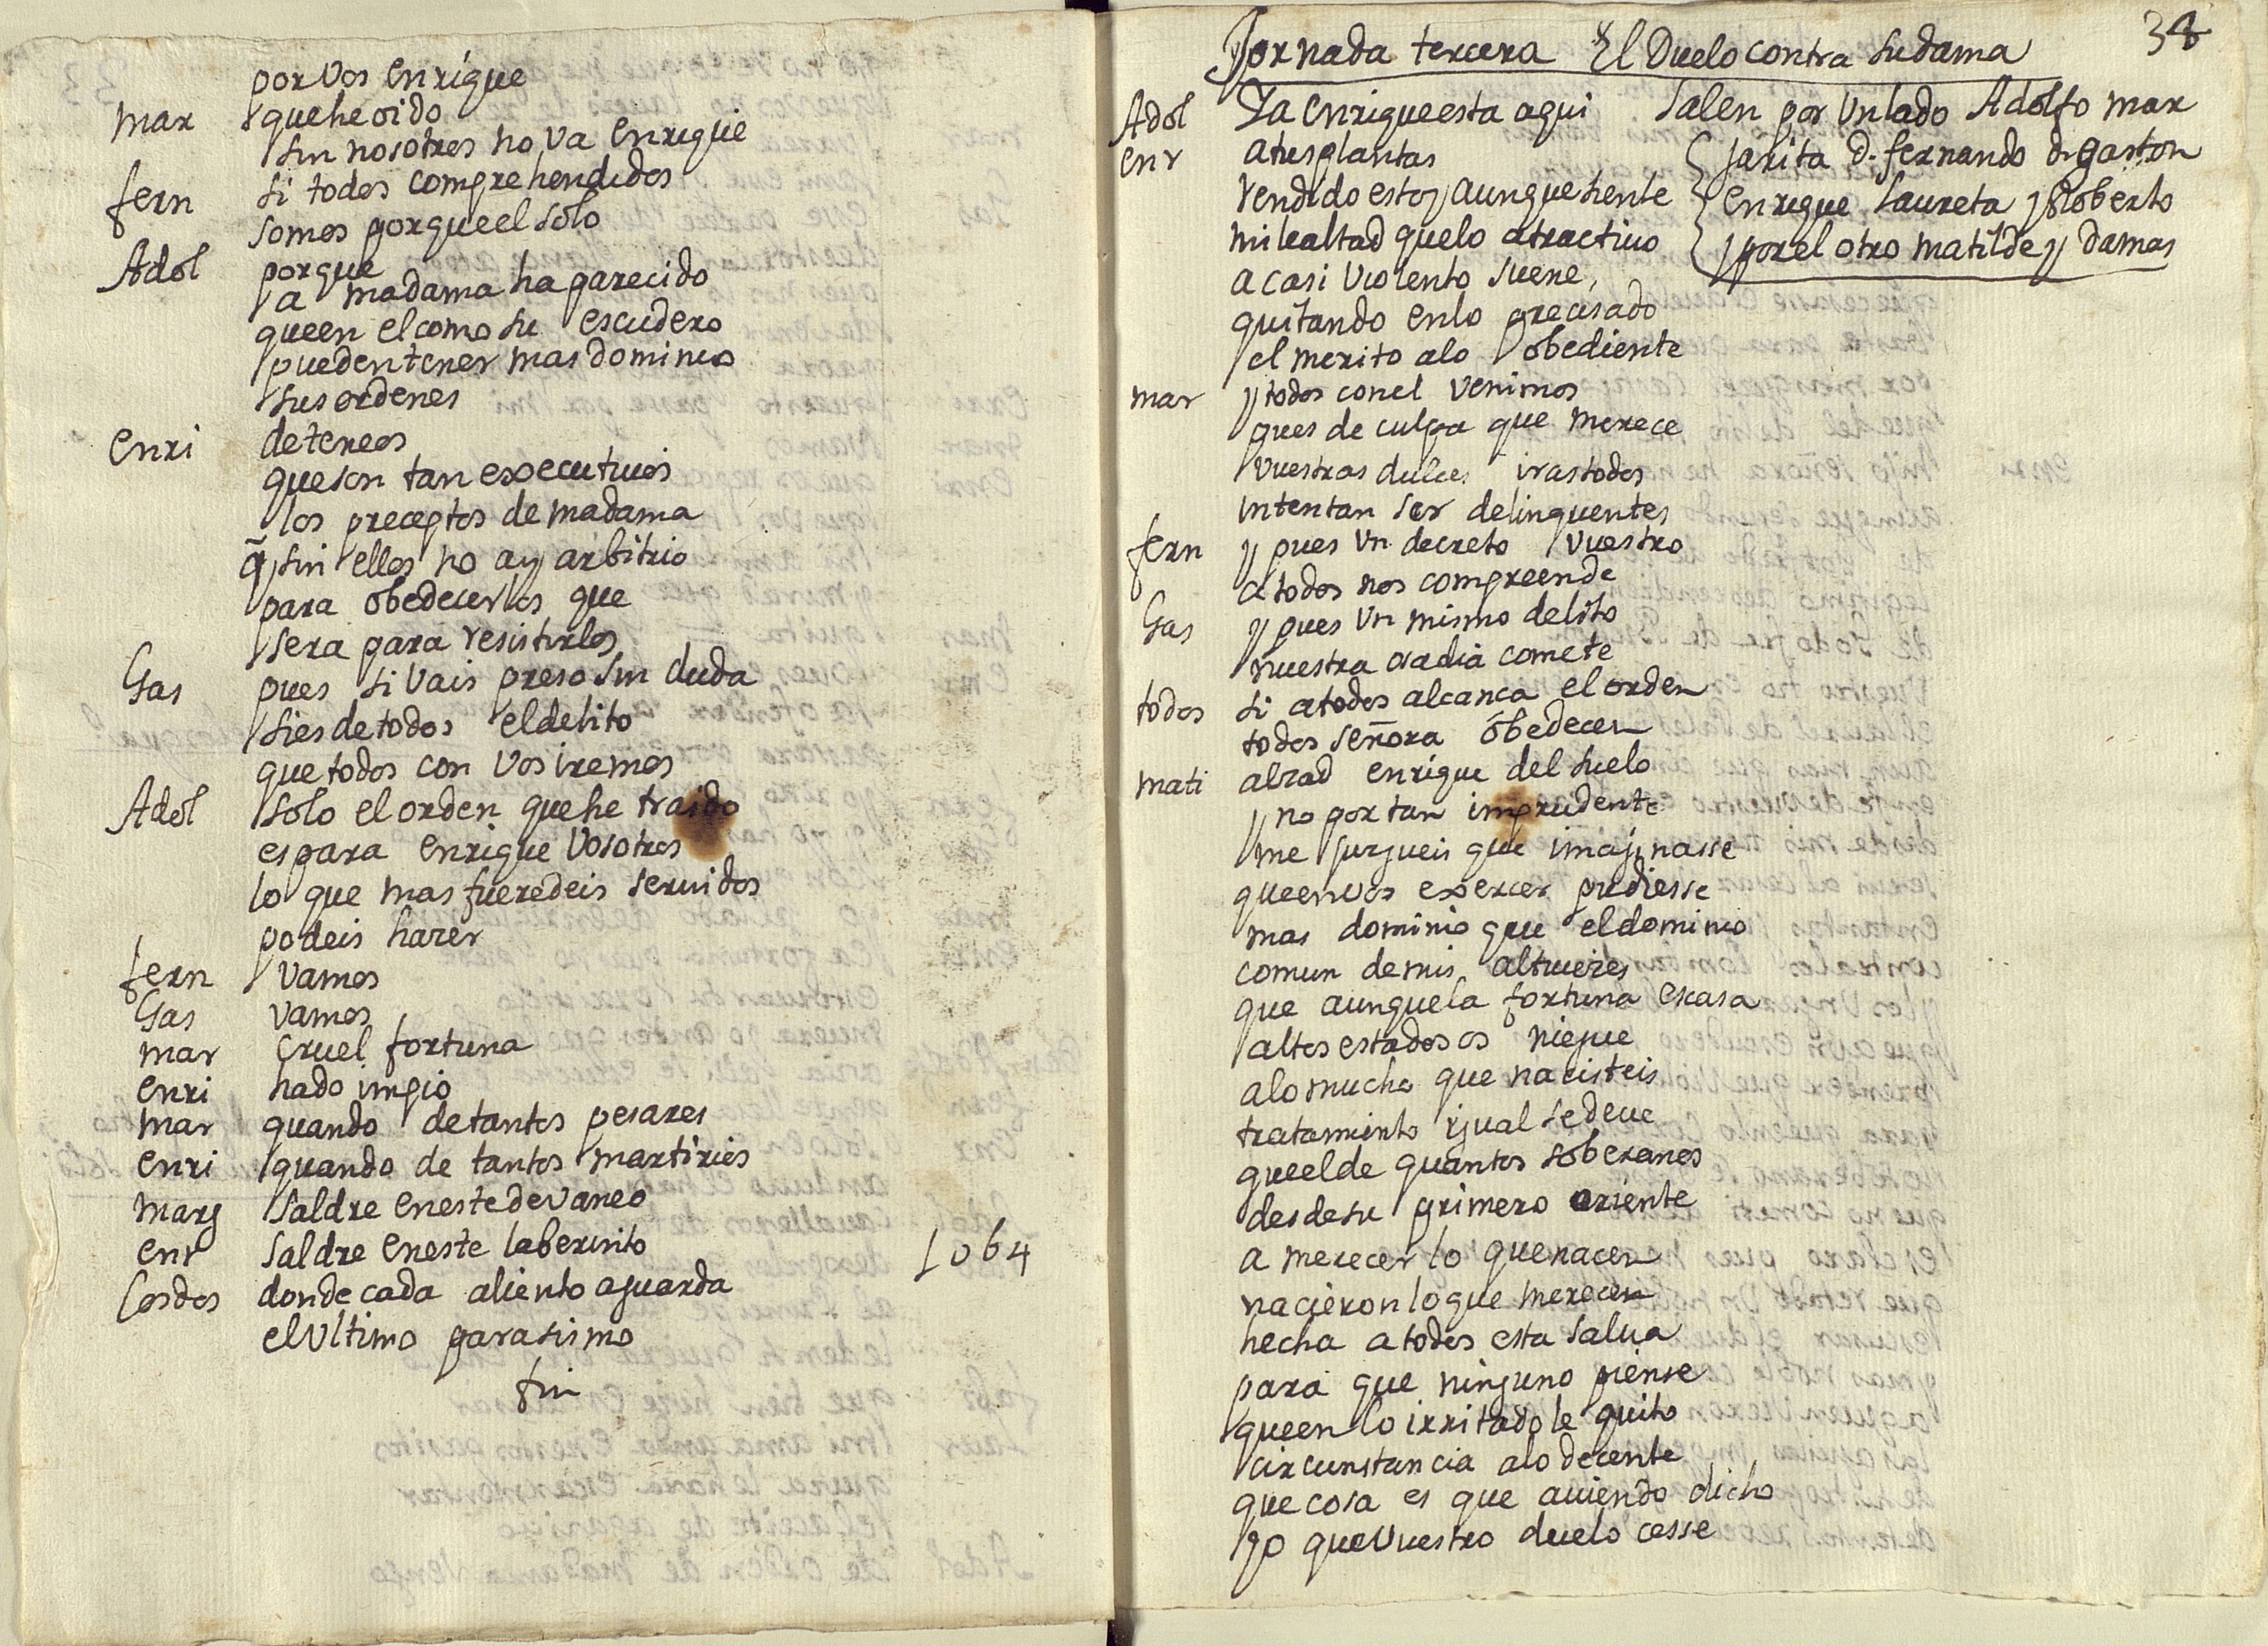 por Vos enrique
mar que he oido
sin nosotros no va enrique
fern si todos comprehendidos
somos porque el solo
Adol porque
a madama ha parecido
que en el como su escudero
pueden tener mas dominio
sus ordenes
enri deteneos
que son tan executiuos
los preceptos de madama
q̃ si sin ellos no ay arbitrio
para obedecerlos que
sera para resistirlos
Gas pues si vais preso sin duda
si es de todos el delito
que todos con vos iremos
Adol solo el orden que he traido
es para enrique Vosotros
lo que mas fueredeis seruidos
podeis hazer
fern vamos
Gas vamos
mar cruel fortuna
enri hado impio
mar quando de tantos pesares
enri quando de tantos martirios
marg saldre en este devaneo
enr saldre en este laberinto
Los dos donde cada aliento aguarda
el Ultimo parasismo
fin
1064
38
Jornada tercera El Duelo contra su dama
Adol Ya enrique esta aqui
Salen por Vn lado Adolfo mar
garita D. fernando D. gaston
enrique laureta y Roberto
y por el otro matilde y damas
enr a tus plantas
rendido estoy aunque siente
mi lealtad que lo atractiuo
a casi violento suene,
quitando en lo precisado
el merito a lo obediente
mar y todos con el venimos
pues de culpa que merece
vuestras dulces iras todos
intentan ser delinquentes
fern y pues Vn decreto vuestro
a todos nos compreende
Gas y pues Vn mismo delito
nuestra osadia comete
todos si a todos alcança el orden
todos señora obedecen
mati alzad enrique del suelo
y no por tan imprudente
me juzgueis que imajinasse
que en vos exercer pudiesse
mas dominio que el dominio
comun de mis altiuezes
que aunque la fortuna escasa
altos estados os niegue
a lo mucho que nacisteis
tratamiento igual se deue
que el de quantos soberanos
desde su primero oriente
a merecer lo que nacen
nacieron lo que merecen
hecha a todos esta salua
para que ninguno piense
que en lo irritado le quito
circunstancia a lo decente
que cosa es que auiendo dicho
yo que Vuestro duelo cesse